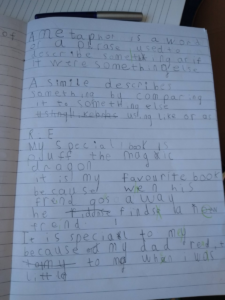 A metaphor is a word
or a phrase used to
describe something as if
it were something else
A simile describes
something by comparing
it to something else
using like or as
R.E
My special book is
puff the magic
dragon
it is my favourite book
because when his
friend gos away
he finds a new
friend
It is special to my
because my dad red it
to my when I was
little